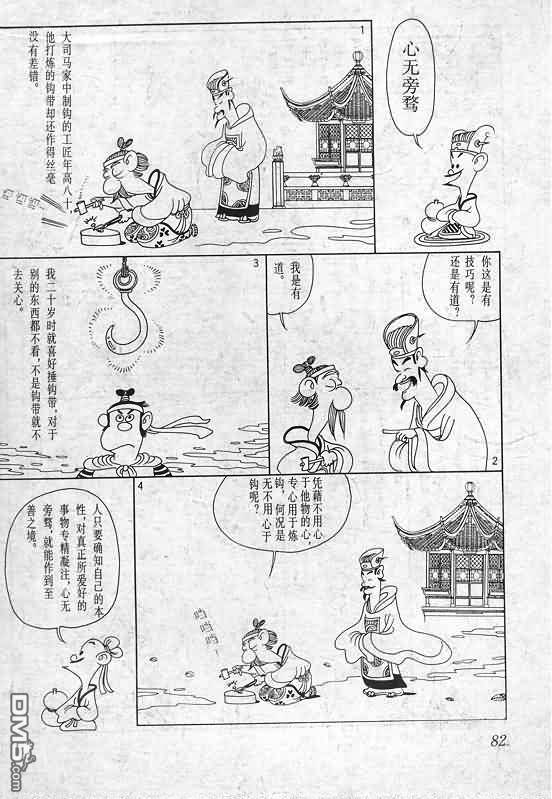 心无旁骛
1
大司马家中制钩的工匠年高八十,
他打炼的钩带却还作得丝毫
没有差错。
你这是有
技巧呢?
还是有道?
我是有
道。
2
3
我二十岁时就喜好捶钩带,对于
别的东西都不看,不是钩带就不
去关心。
4
凭藉不用心
于他物的心,
专心用于炼
钩,何况是
无不用心于
钩呢?
铛
铛
铛
!
人只要确知自己的本
性,对真正所爱好的
事物专精凝注,心无
旁骛,就能作到至
善之境。
82.
DM5.com